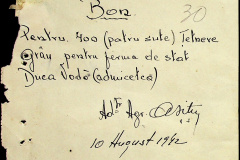 Bon
30
Pentru, 400 (patru sute) Tetnere
grâu pentru ferma de stat
Duca Vodă (admicetea)
Adtr Agr.
10 August 1942